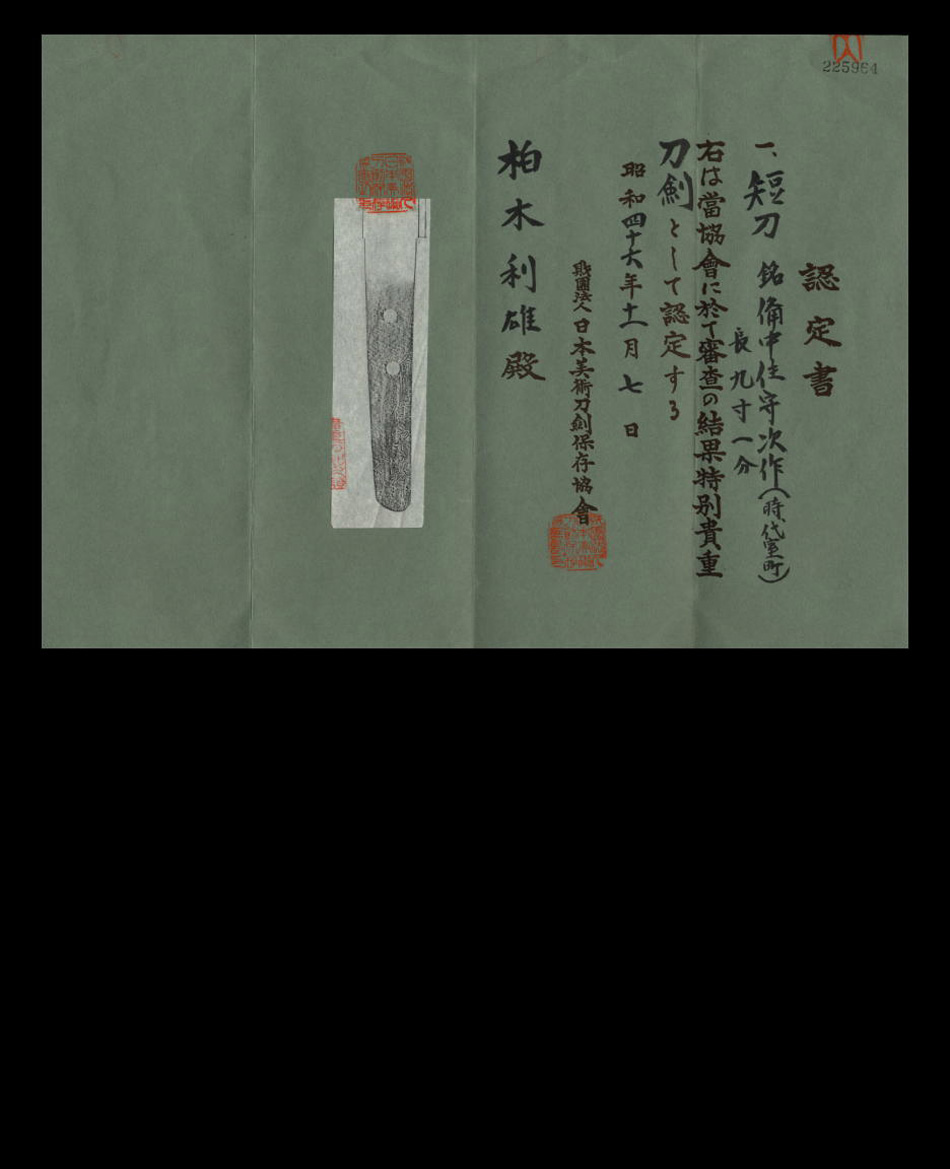 225964
認定書
一、短刀 銘 備中住守次作(時代室町)
長九寸一分
右は當協會に於て審査の結果特別貴重
刀劍として認定する
昭和四十六年十一月七日
財團法人日本美術刀劍保存協會
柏木利雄殿